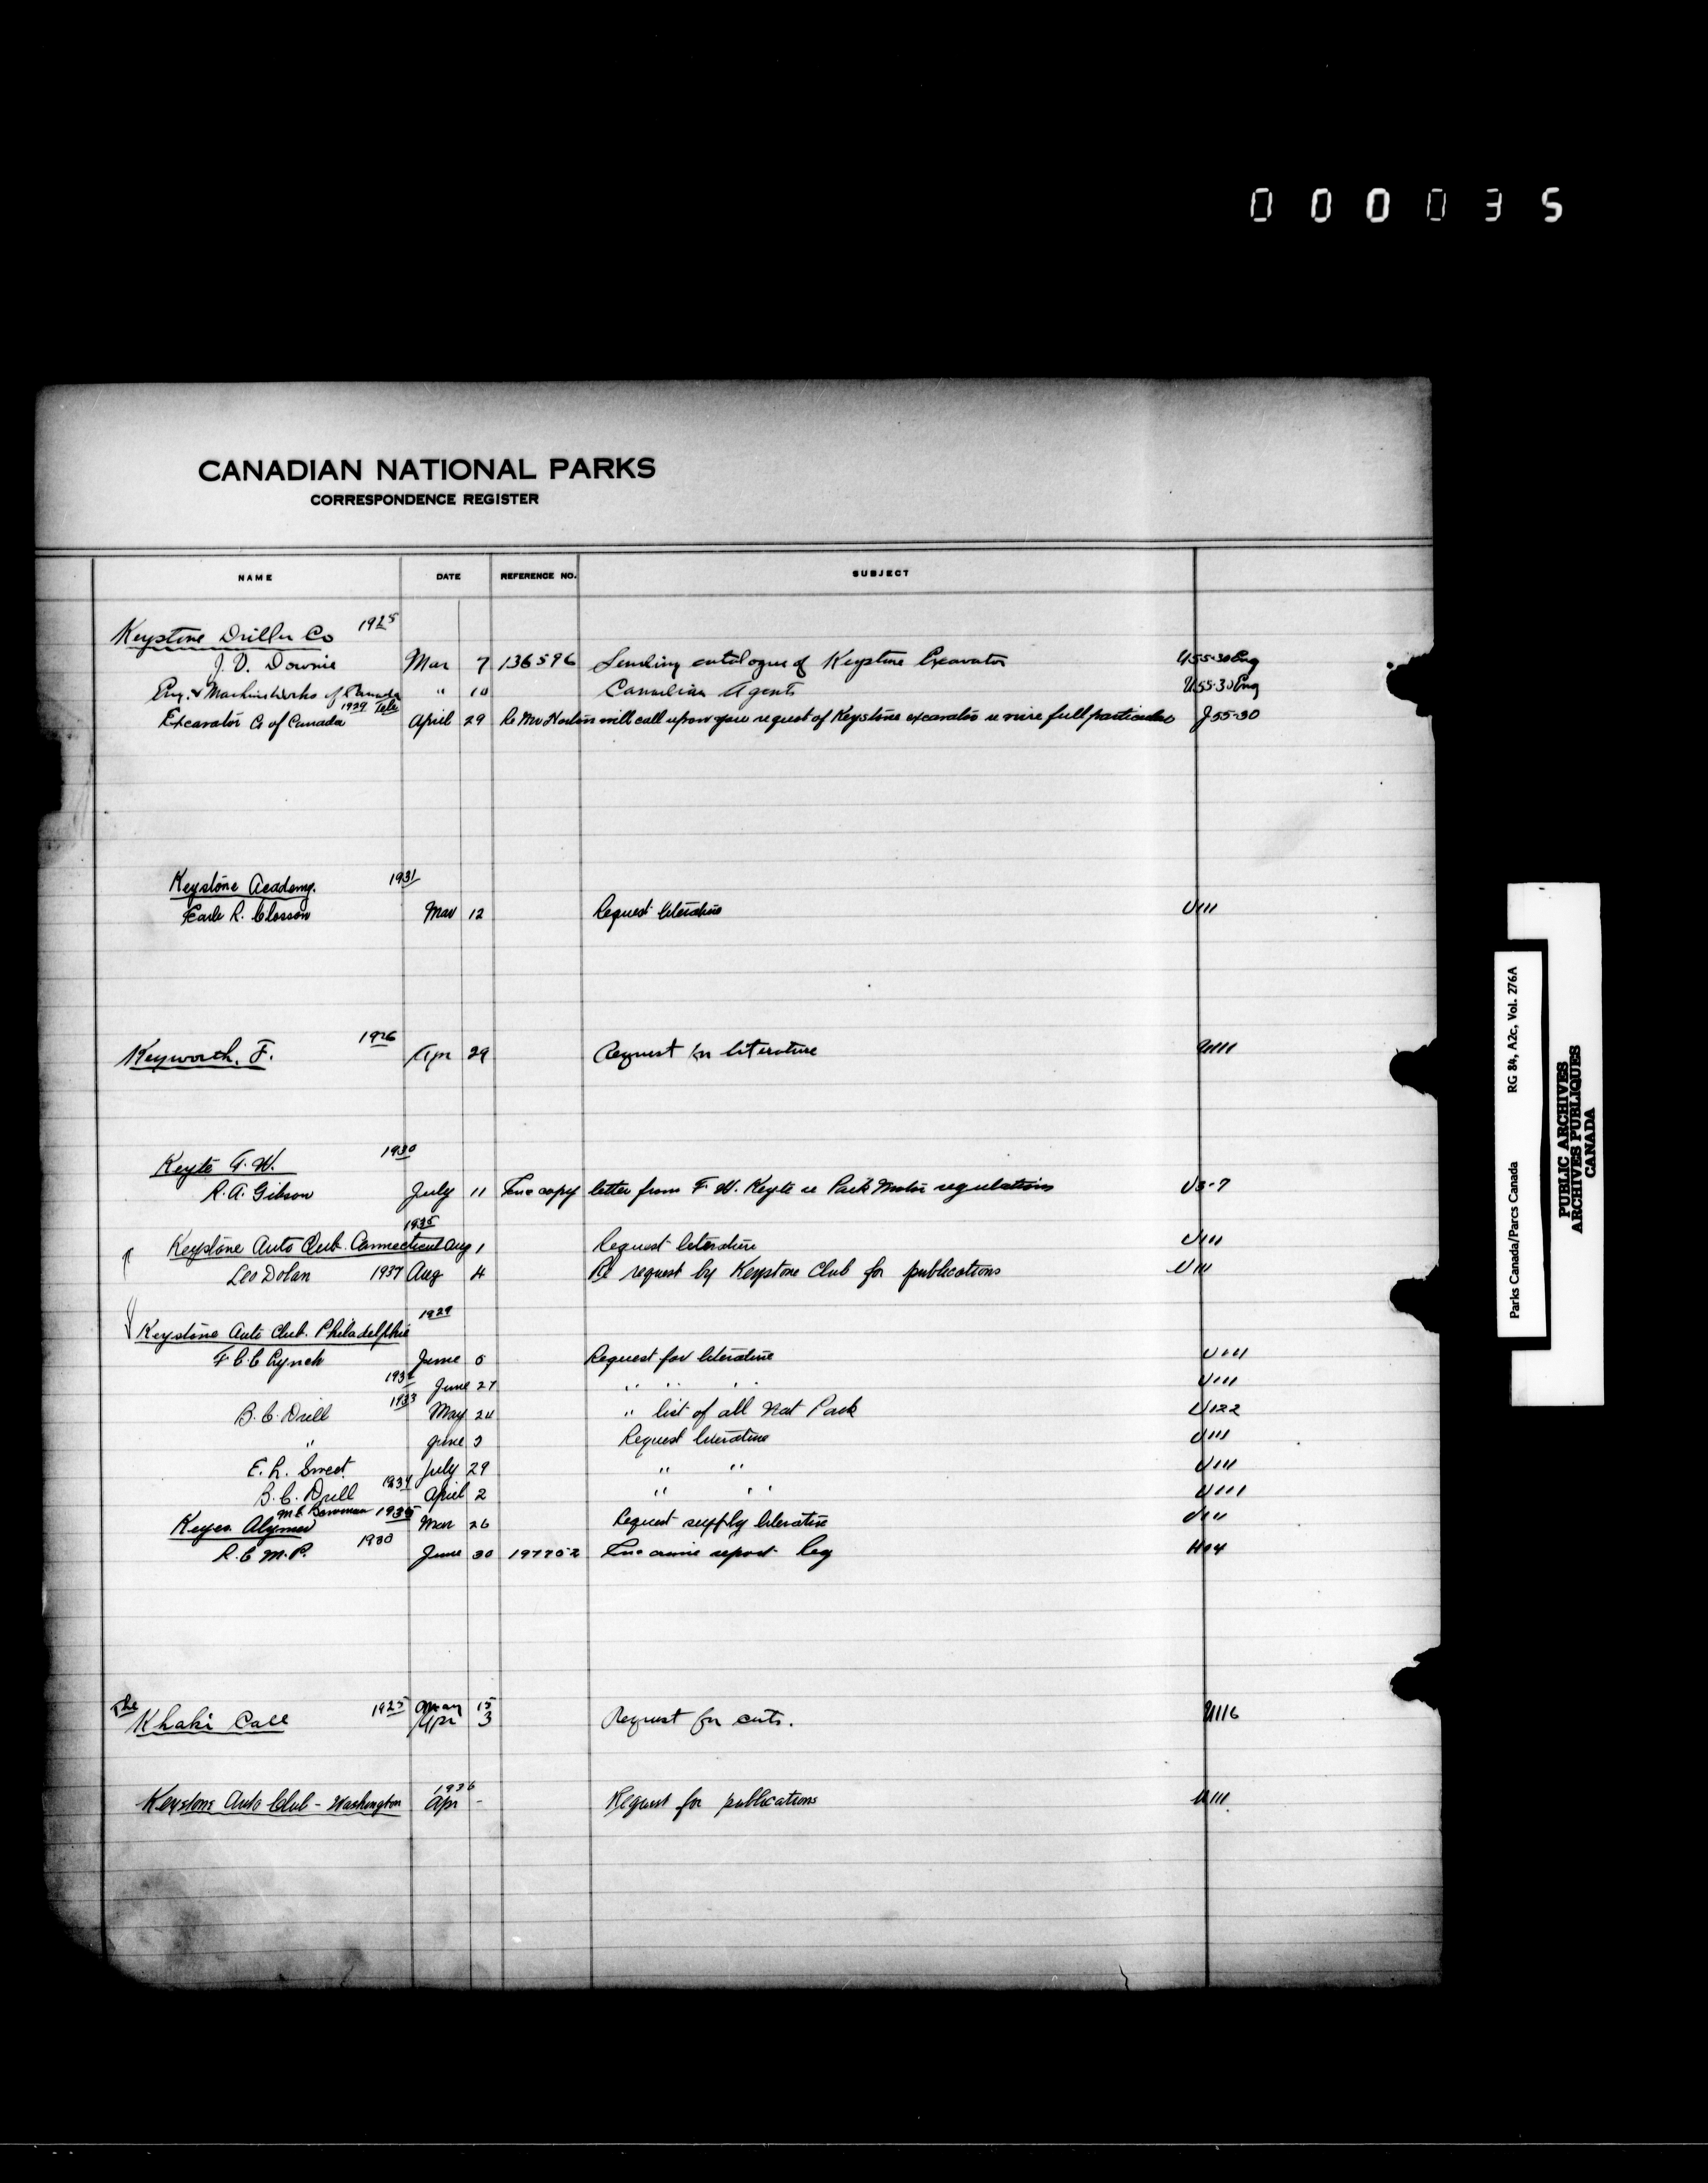 000035
CANADIAN NATIONAL PARKS
CORRESPONDENCE REGISTER
NAME DATE REFERENCE NO. SUBJECT
Keystone Driller Co 1925
J. D. Downie Mar 7 136596 Sending catalogue of Keystone Excavator U55-30 Eng
Eng. & Machine Works of Canada " 10 Canadian Agents U55-30 Eng
1929 Tele
Excavator Co of Canada April 29 Re Mr will call upon you request of Keystone excavator wire full particulars J55-30
Keystone Academy. 1931
Earle R. Closson Mar 12 Request literature U111
Keyworth, F. 1926 Apr 29 Request for literature U111
Keyte F. W. 1930
R. A. Gibson July 11 Enc copy letter from F. W. Keyte re Park Motor regulations U3-7
1935
Keystone Auto Club. Connecticut Aug 1 Request literature U111
Leo Dolan 1937 Aug 4 Re request by Keystone Club for publications U111
1929
Keystone Auto Club. Philadelphia
F C C Lynch June 5 Request for literature U111
June 27 " " " " U111
1933
B. C. Drell May 24 " list of all Nat Park U122
" June 3 Request literature U111
E. L. Sweet July 29 " " U111
B. C. Drell 1934 April 2 " " U111
M. E. Bowman 1935 Mar 26 Request supply literature U111
Keyes Alymer
R. C M. P. 1930 June 30 197752 Enc crime report Reg H14
The Khaki Call 1925 Mar 15
Apr 3 Request for cuts. U116
1936
Keystone Auto Club - Washington Apr - Request for publications U111
Parks Canada/Parcs Canada RG 84, A2c, Vol. 276A
PUBLIC ARCHIVES
ARCHIVES PUBLIQUES
CANADA